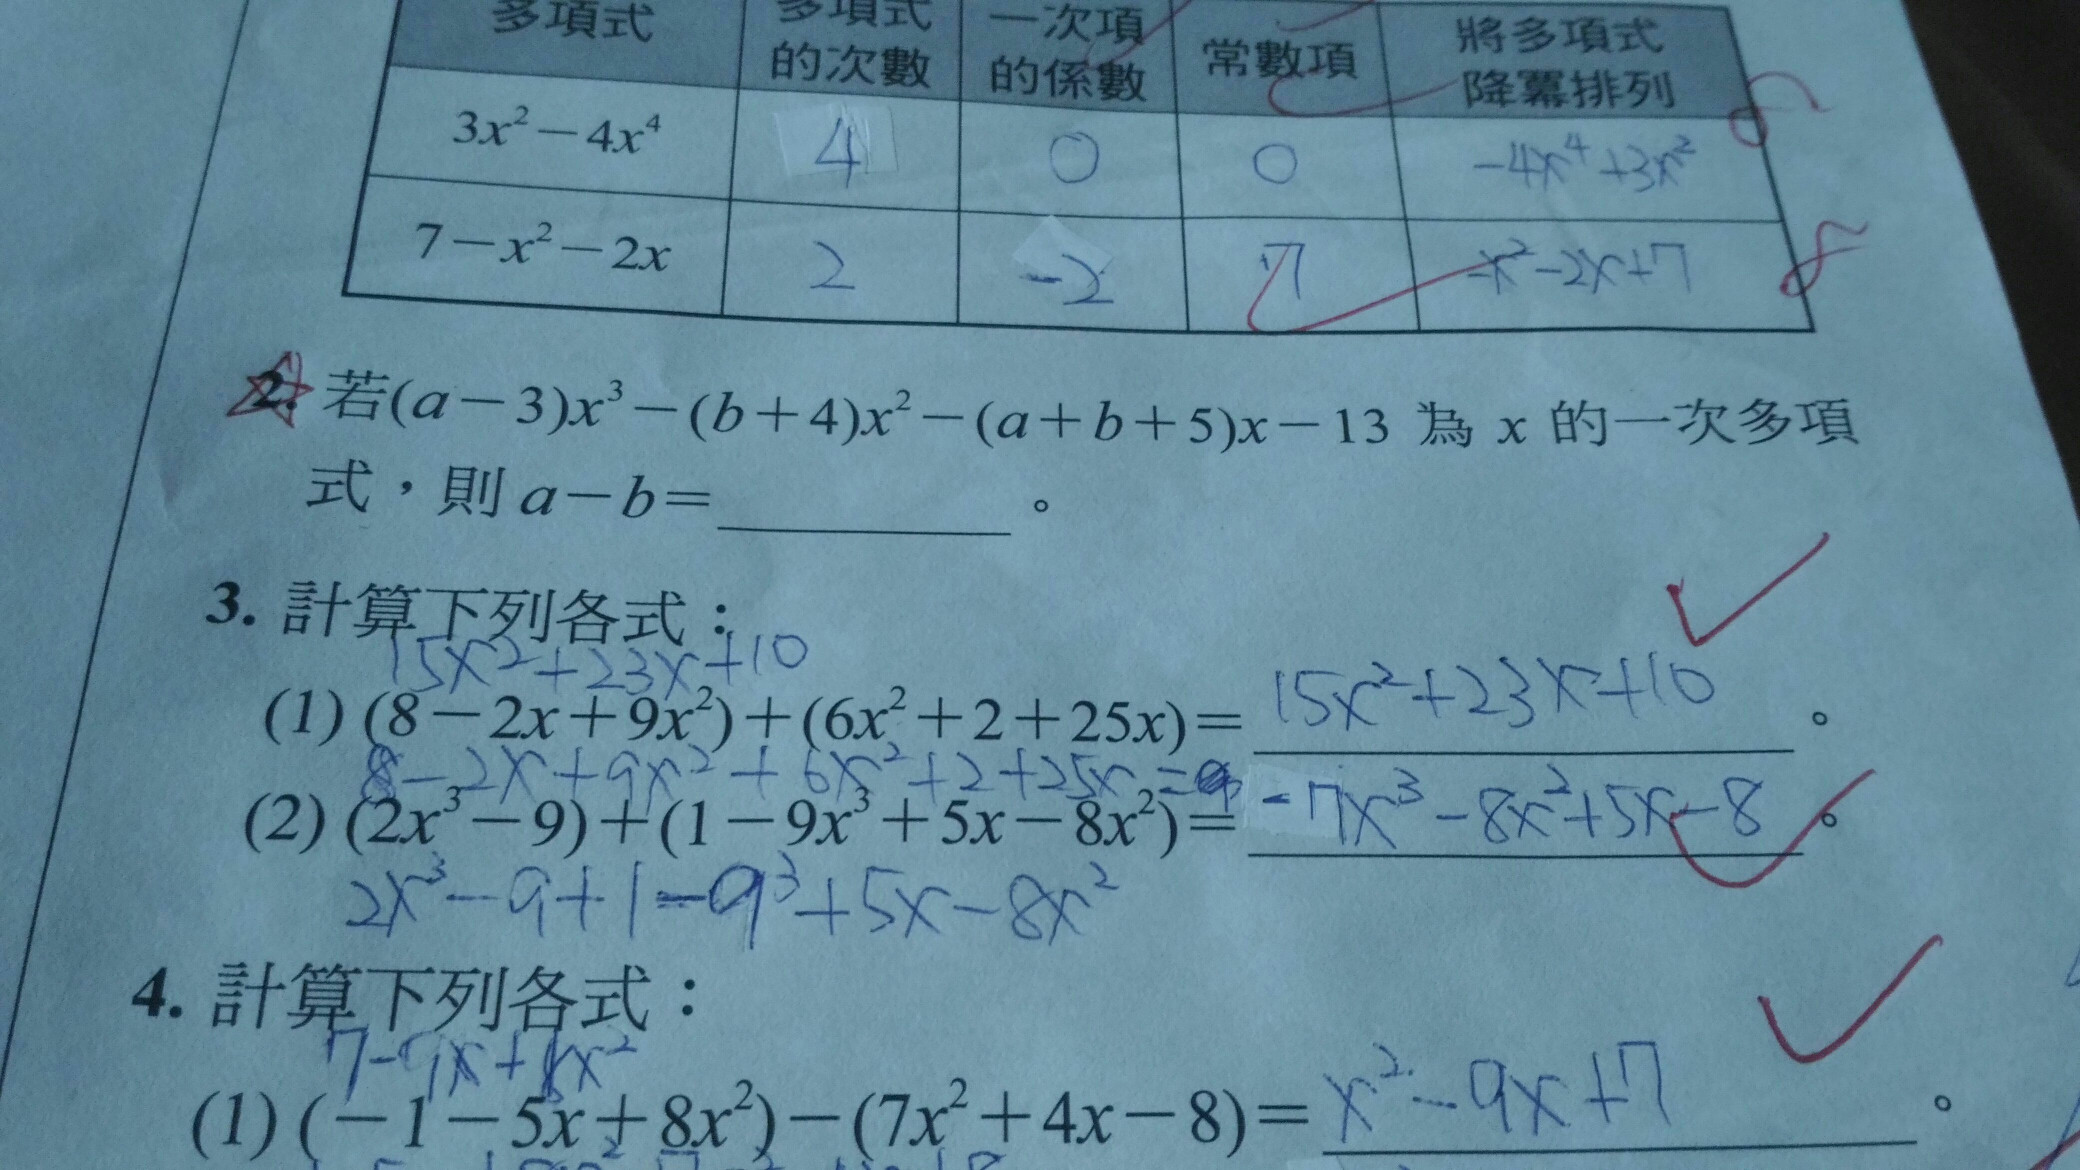 多項式 多項式的次數 一次項的係數 常數項 將多項式降冪排列
3x²－4x⁴ 4 0 0 -4x⁴+3x²
7－x²－2x 2 -2 7 -x²-2x+7
2. 若(a－3)x³－(b＋4)x²－(a＋b＋5)x－13 為 x 的一次多項
式，則 a－b＝________。
3. 計算下列各式：
15x²+23x+10
(1) (8－2x＋9x²)＋(6x²＋2＋25x)＝ 15x²+23x+10 。
8-2x+9x²+6x²+2+25x=
(2) (2x³－9)＋(1－9x³＋5x－8x²)＝ -7x³-8x²+5x-8 。
2x³-9+1-9³+5x-8x²
4. 計算下列各式：
7-9x+x²
(1) (－1－5x＋8x²)－(7x²＋4x－8)＝ x²-9x+7 。